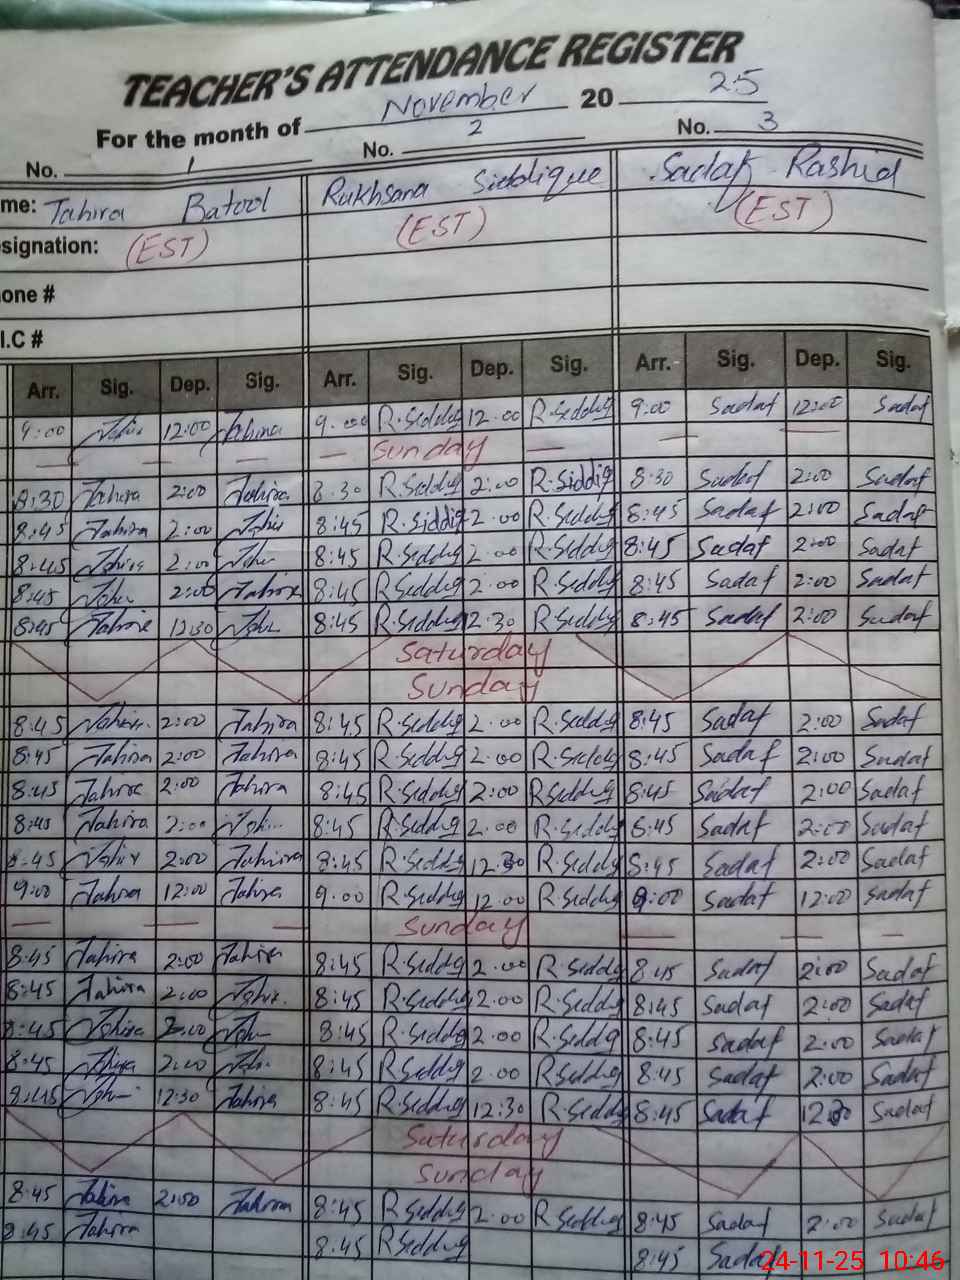 TEACHER'S ATTENDANCE REGISTER
For the month of November 20 25
No. 1 No. 2 No. 3
me: Tahira Batool Rukhsana Siddique Sadaf Rashid
signation: (EST) (EST) (EST)
one #
I.C #
Arr. Sig. Dep. Sig. Arr. Sig. Dep. Sig. Arr. Sig. Dep. Sig.
9:00 12:00 Tahira 9.00 R.Siddiq 12.00 R.Siddiq 9:00 Sadaf 12:00 Sadaf
Sunday
8:30 Tahira 2:00 Tahira 8.30 R.Siddiq 2:00 R.Siddiq 8:30 Sadaf 2:00 Sadaf
8:45 Tahira 2:00 8:45 R.Siddiq 2.00 R.Siddiq 8:45 Sadaf 2:00 Sadaf
8:45 2:00 8:45 R.Siddiq 2.00 R.Siddiq 8:45 Sadaf 2:00 Sadaf
8:45 2:00 Tahira 8:45 R.Siddiq 2:00 R.Siddiq 8:45 Sadaf 2:00 Sadaf
8:45 Tahira 12:30 8:45 R.Siddiq 2.30 R.Siddiq 8:45 Sadaf 2:00 Sadaf
Saturday
Sunday
8:45 2:00 Tahira 8:45 R.Siddiq 2.00 R.Siddiq 8:45 Sadaf 2:00 Sadaf
8:45 Tahira 2:00 Tahira 8:45 R.Siddiq 2.00 R.Siddiq 8:45 Sadaf 2:00 Sadaf
8:45 Tahira 2:00 Tahira 8:45 R.Siddiq 2:00 R Siddiq 8:45 Sadaf 2:00 Sadaf
8:45 Tahira 2:00 8:45 R.Siddiq 2.00 R.Siddiq 8:45 Sadaf 2:00 Sadaf
8:45 2:00 Tahira 8:45 R.Siddiq 12.30 R.Siddiq 8:45 Sadaf 2:00 Sadaf
9:00 Tahira 12:00 Tahira 9.00 R.Siddiq 12.00 R.Siddiq 9:00 Sadaf 12:00 Sadaf
Sunday
8:45 Tahira 2:00 Tahira 8:45 R.Siddiq 2.00 R.Siddiq 8:45 Sadaf 2:00 Sadaf
8:45 Tahira 2:00 8:45 R.Siddiq 2.00 R.Siddiq 8:45 Sadaf 2:00 Sadaf
8:45 2:00 8:45 R.Siddiq 2.00 R.Siddiq 8:45 Sadaf 2:00 Sadaf
8:45 Tahira 2:00 8:45 R Siddiq 2.00 R.Siddiq 8:45 Sadaf 2:00 Sadaf
8:45 12:30 Tahira 8:45 R.Siddiq 12:30 R.Siddiq 8:45 Sadaf 12:30 Sadaf
Saturday
Sunday
8:45 Tahira 2:00 Tahira 8:45 R.Siddiq 2.00 R Siddiq 8:45 Sadaf 2:00 Sadaf
8:45 Tahira 8.45 R Siddiq 8:45 Sadaf
24-11-25 10:46